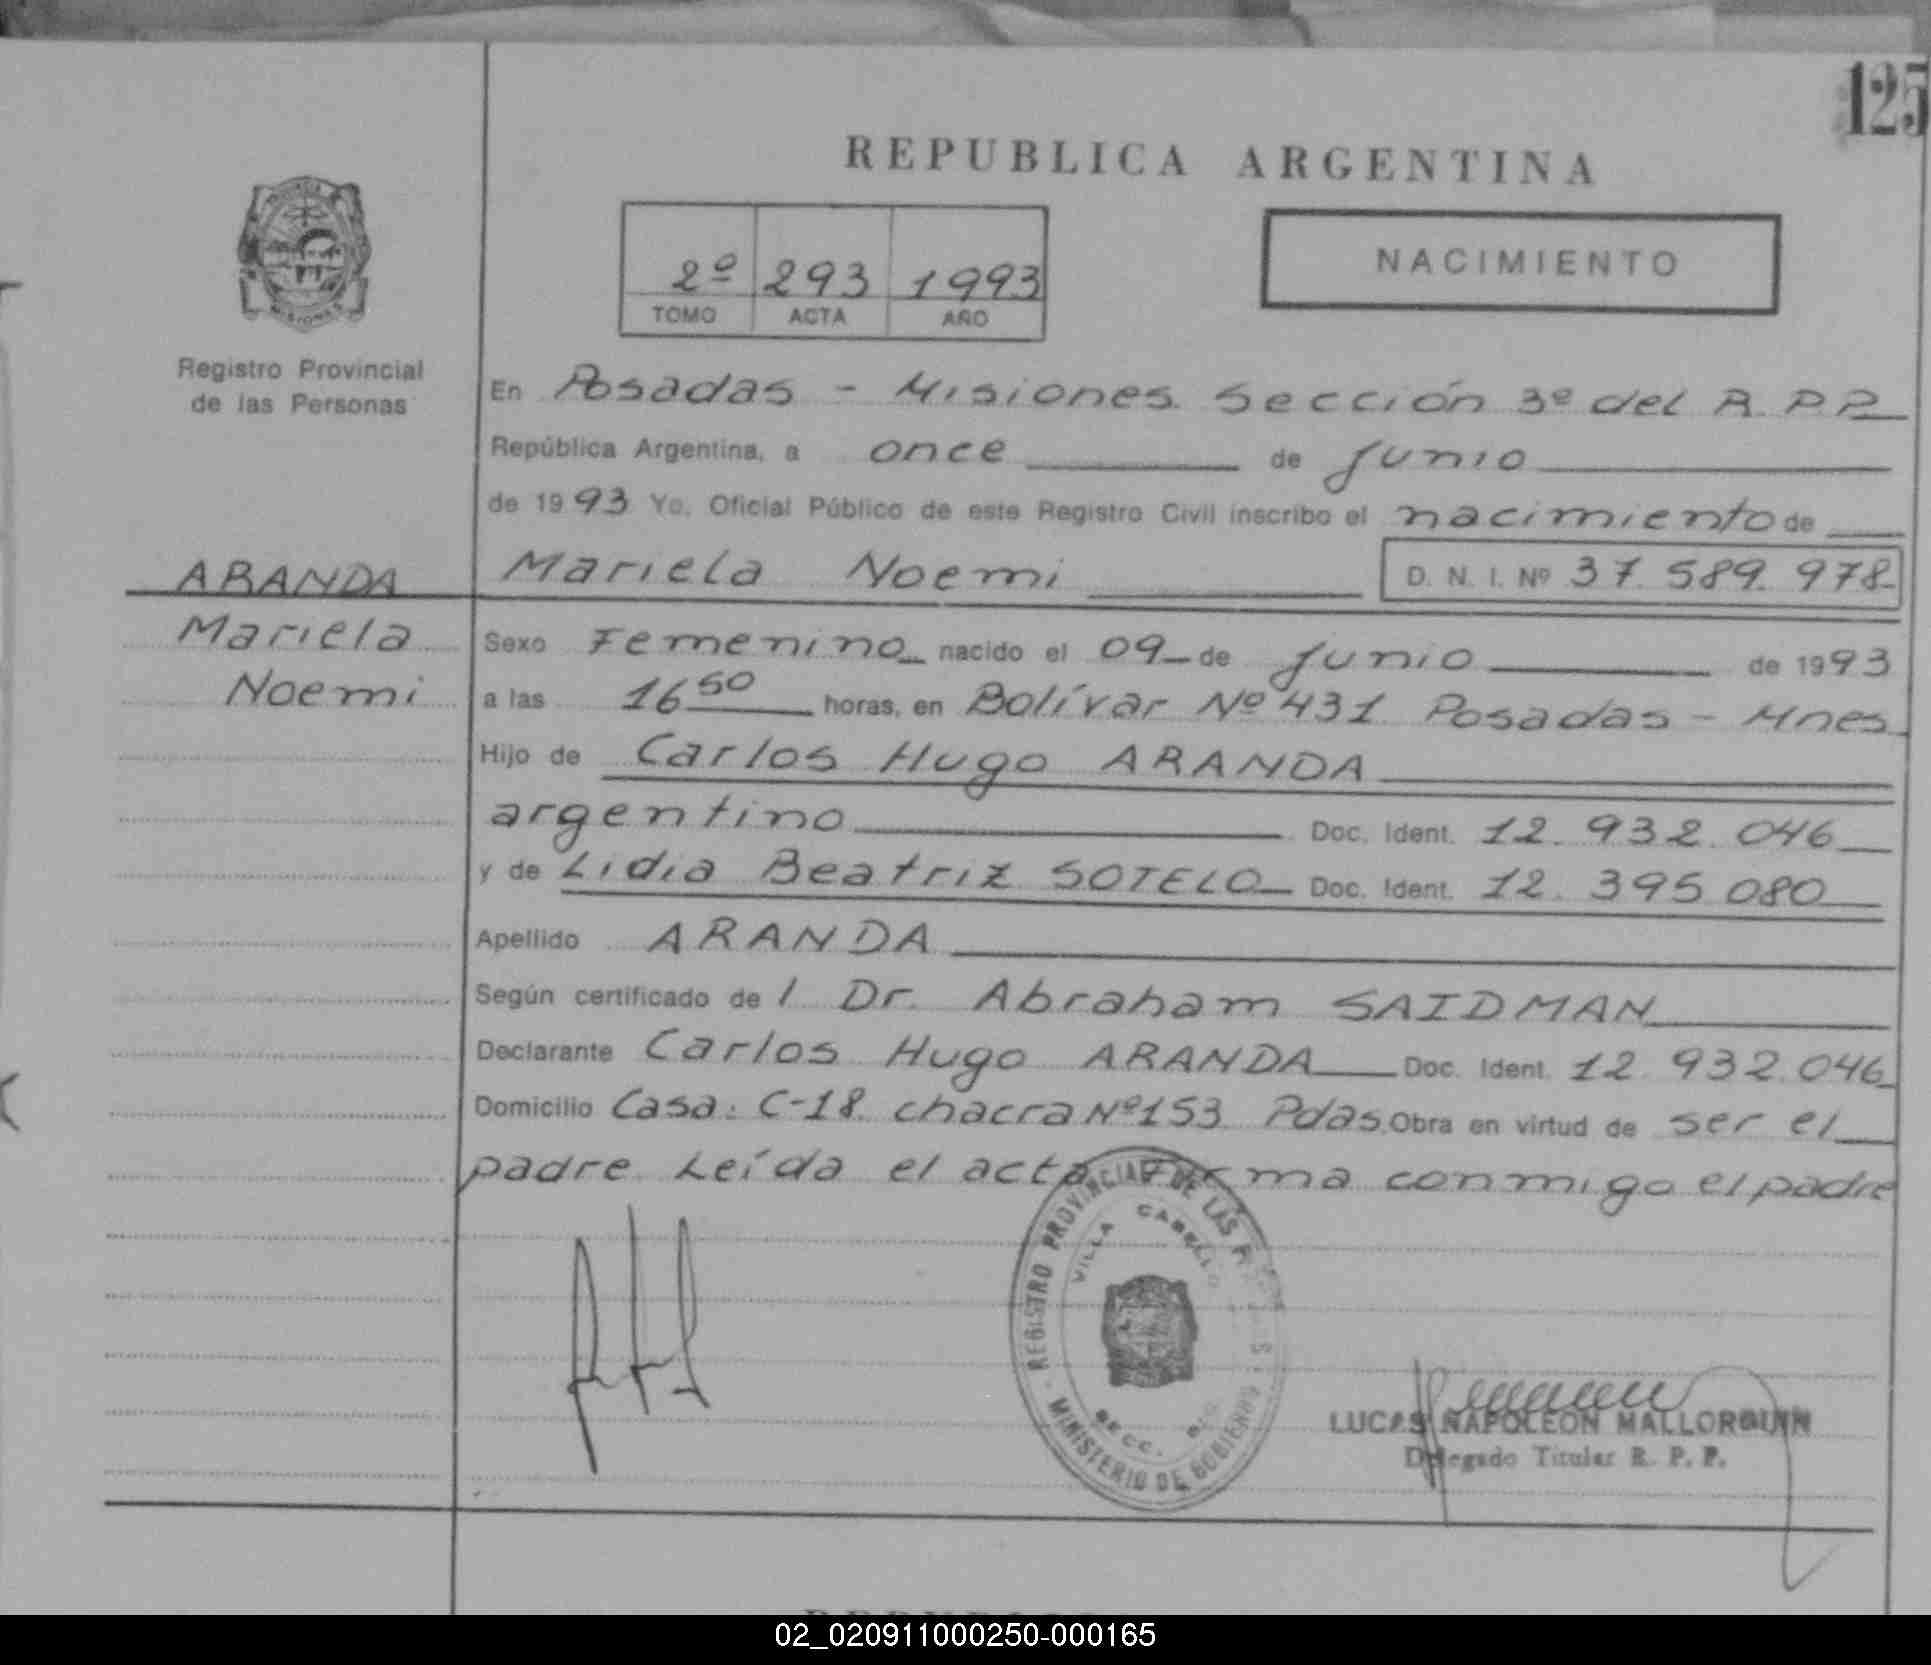 125
REPUBLICA ARGENTINA
MISIONES
Registro Provincial
de las Personas
2º 293 1993
TOMO ACTA AÑO
NACIMIENTO
En Posadas - Misiones Sección 3º del R.P.P.
República Argentina, a once de junio
de 1993 Yo, Oficial Público de este Registro Civil inscribo el nacimiento de
ARANDA
Mariela
Noemi
Mariela Noemi D. N. I. Nº 37.589.978
Sexo Femenino nacido el 09 de junio de 1993
a las 16 50 horas, en Bolívar Nº 431 Posadas - Mnes
Hijo de Carlos Hugo ARANDA
argentino Doc. Ident. 12.932.046
y de Lidia Beatriz SOTELO Doc. Ident. 12.395.080
Apellido ARANDA
Según certificado de l Dr. Abraham SAIDMAN
Declarante Carlos Hugo ARANDA Doc. Ident. 12.932.046
Domicilio Casa: C-18 chacra Nº 153 Pdas. Obra en virtud de ser el
padre. Leída el acta firma conmigo el padre
REGISTRO PROVINCIAL DE LAS PERSONAS
VILLA CABELLO
SECC.
MINISTERIO DE GOBIERNO
LUCAS NAPOLEON MALLORQUIN
Delegado Titular R. P. P.
02_020911000250-000165